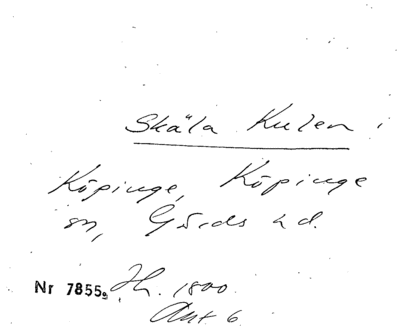 Skäla Kulen
Köpinge, Köpinge
sn, Gärds hd.
Nr 7855 Jh. 1800.
Ant 6